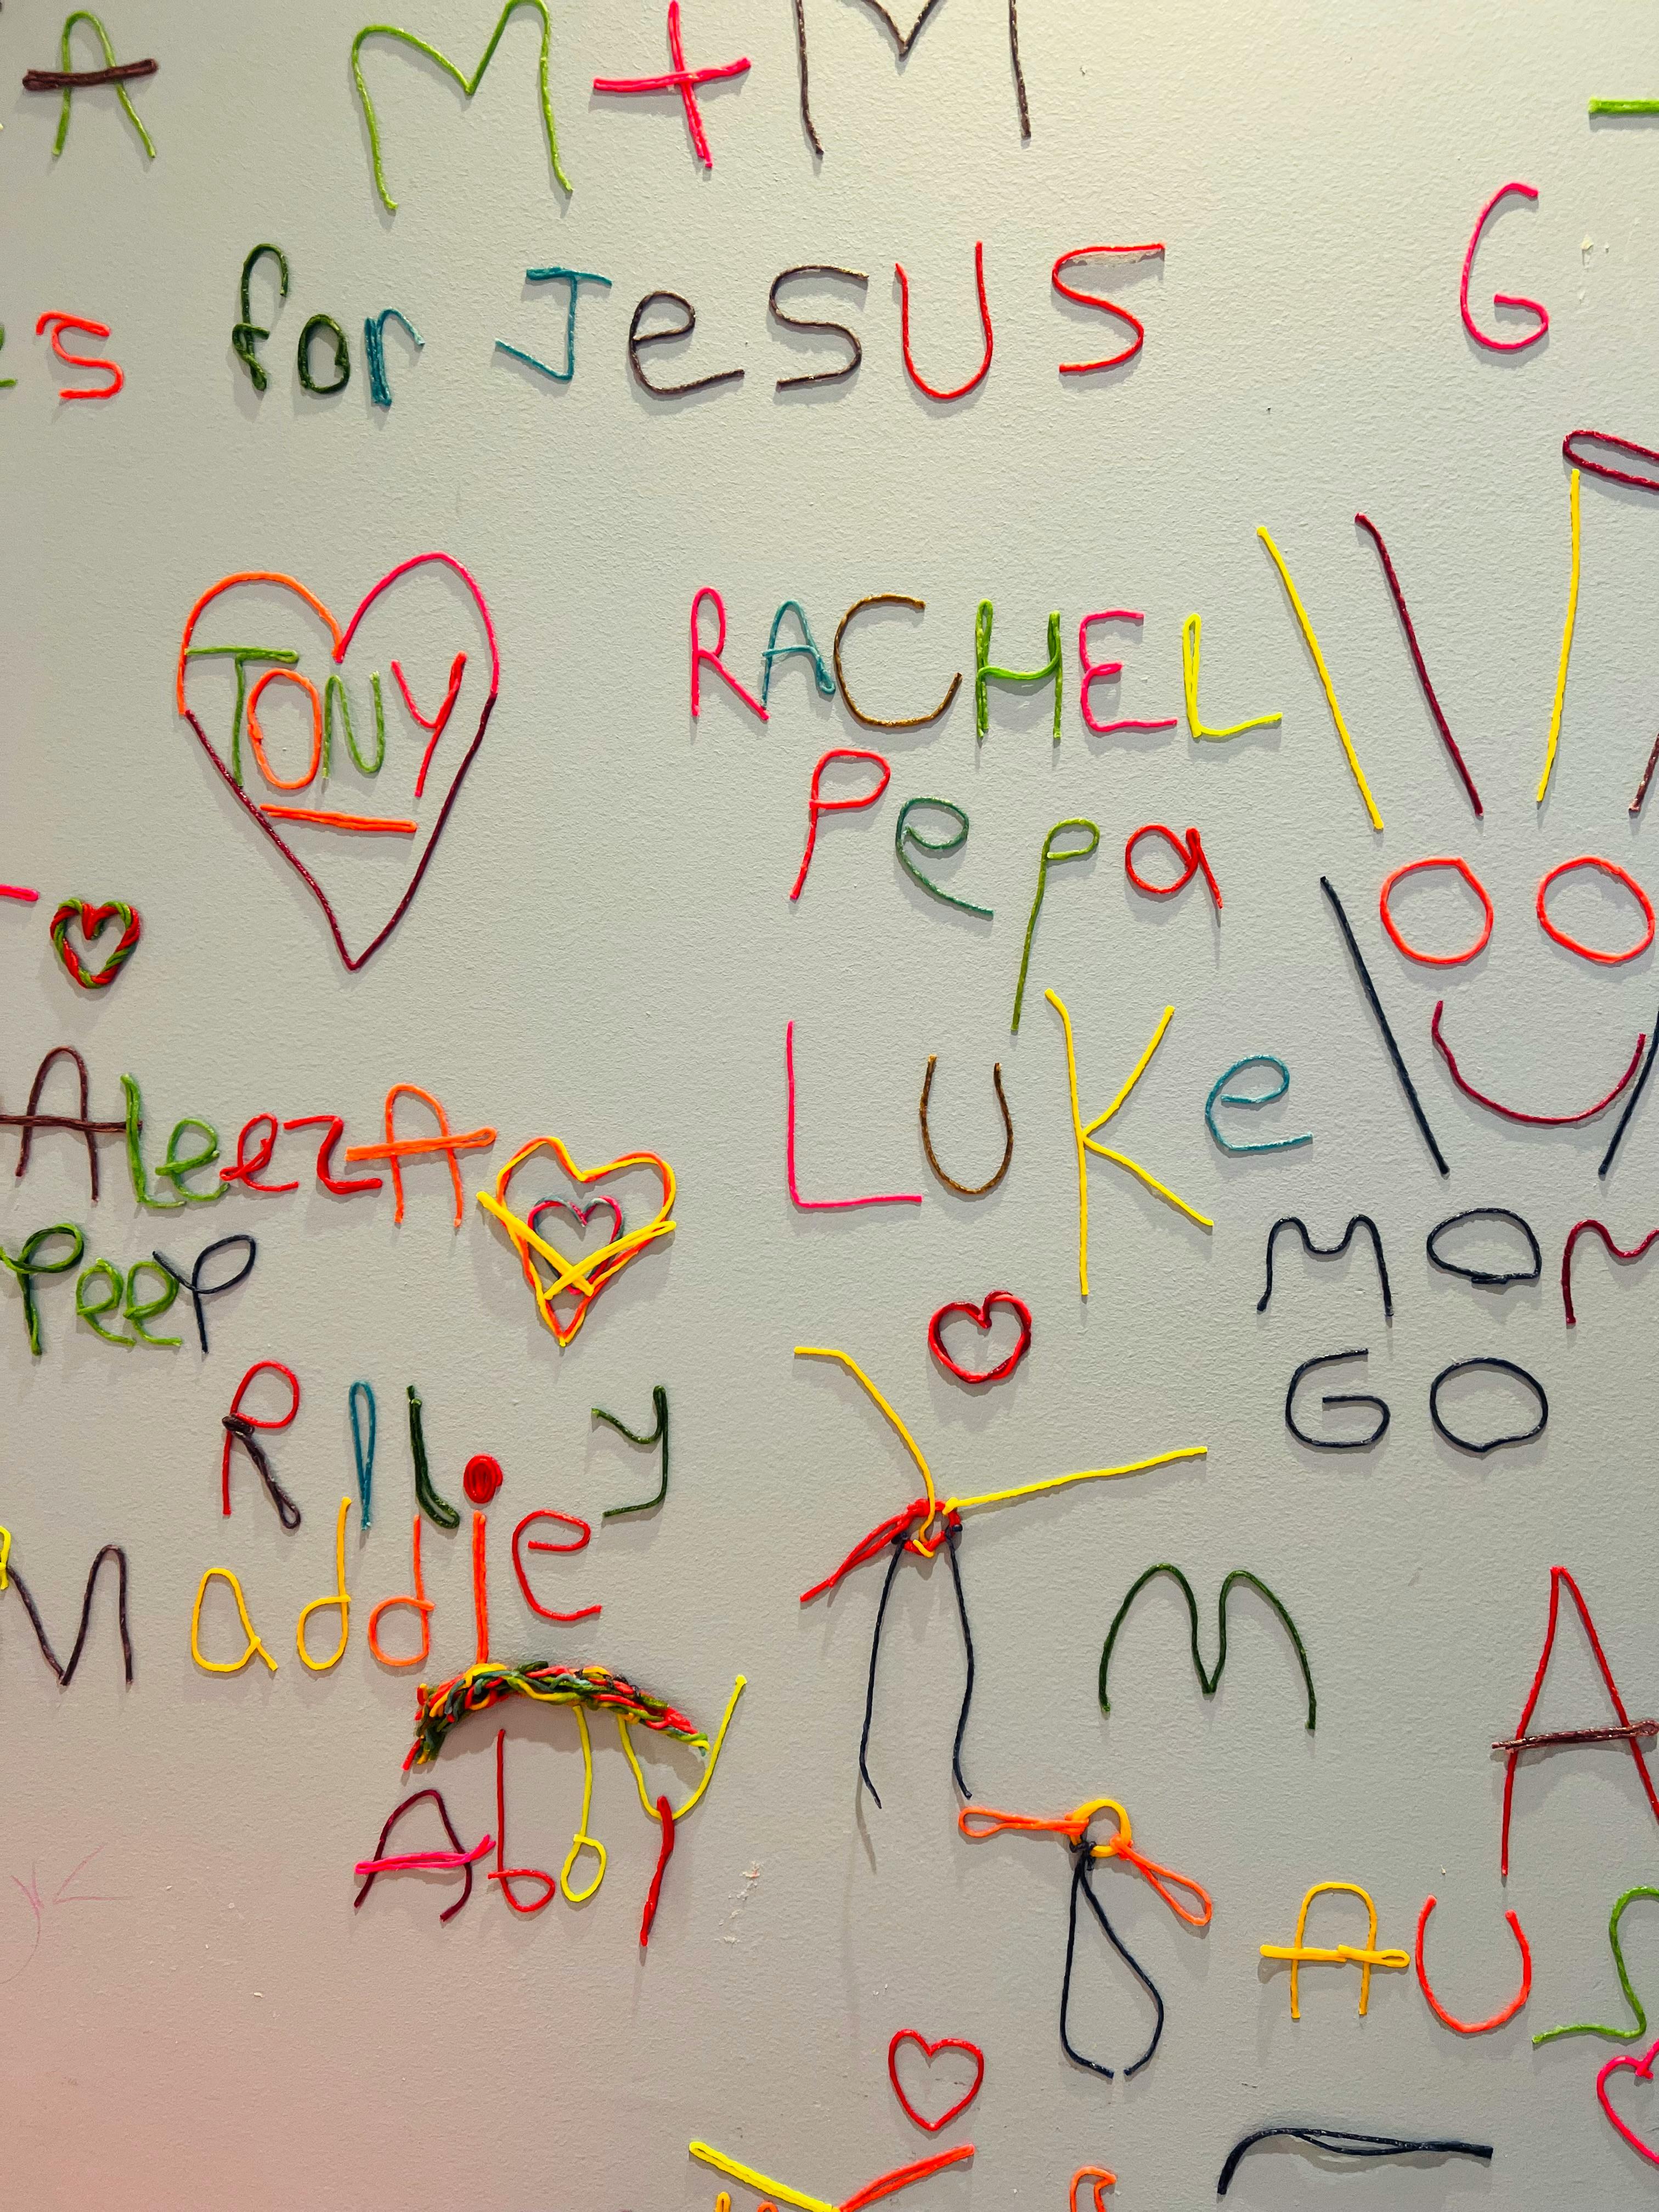 A M+M
s for JesUS
G
TONY
RACHEL
Pepa
LUKe
AleezA
Peep
MOM
GO
RIley
Maddie
M A
Abby
AUS